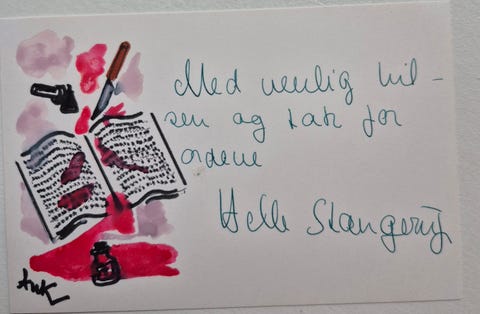 Med venlig hil-
sen og tak for
ordene
Helle Stangerup